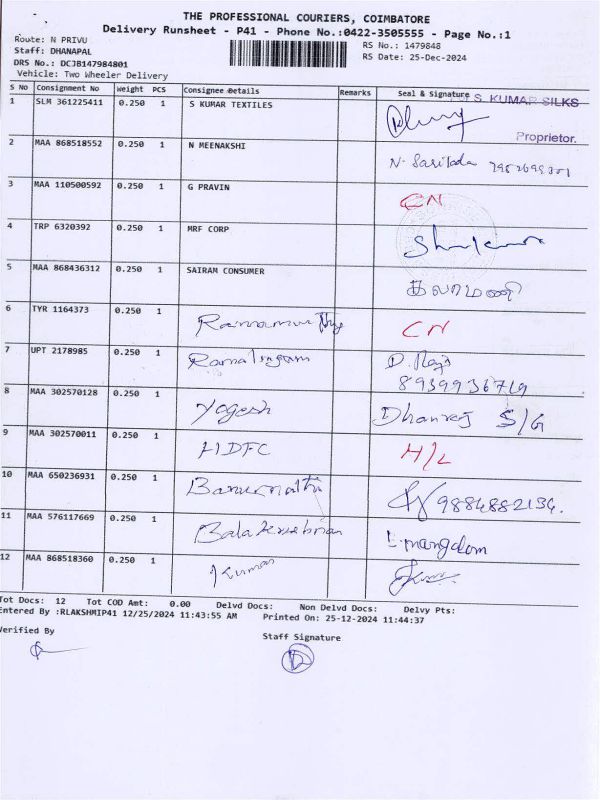 THE PROFESSIONAL COURIERS, COIMBATORE
Delivery Runsheet - P41 - Phone No.:0422-3505555 - Page No.:1
Route: N PRIVU
RS No.: 1479848
Staff: DHANAPAL
RS Date: 25-Dec-2024
DRS No.: DCJB147984801
Vehicle: Two Wheeler Delivery
S No Consignment No Weight PCS Consignee Details Remarks Seal & Signature
S KUMAR SILKS
1 SLM 361225411 0.250 1 S KUMAR TEXTILES
Proprietor.
2 MAA 868518552 0.250 1 N MEENAKSHI
3 MAA 110500592 0.250 1 G PRAVIN CN
4 TRP 6320392 0.250 1 MRF CORP
5 MAA 868436312 0.250 1 SAIRAM CONSUMER கலாமணி
6 TYR 1164373 0.250 1 CN
7 UPT 2178985 0.250 1 Ramalingam D. Raja
8939936719
8 MAA 302570128 0.250 1 Yogesh Dhanraj S/G
9 MAA 302570011 0.250 1 HDFC H/L
10 MAA 650236931 0.250 1 Banumathi 9884882134.
11 MAA 576117669 0.250 1
12 MAA 868518360 0.250 1 Kumar
Tot Docs: 12 Tot COD Amt: 0.00 Delvd Docs: Non Delvd Docs: Delvy Pts:
Entered By :RLAKSHMIP41 12/25/2024 11:43:55 AM Printed On: 25-12-2024 11:44:37
Verified By
Staff Signature